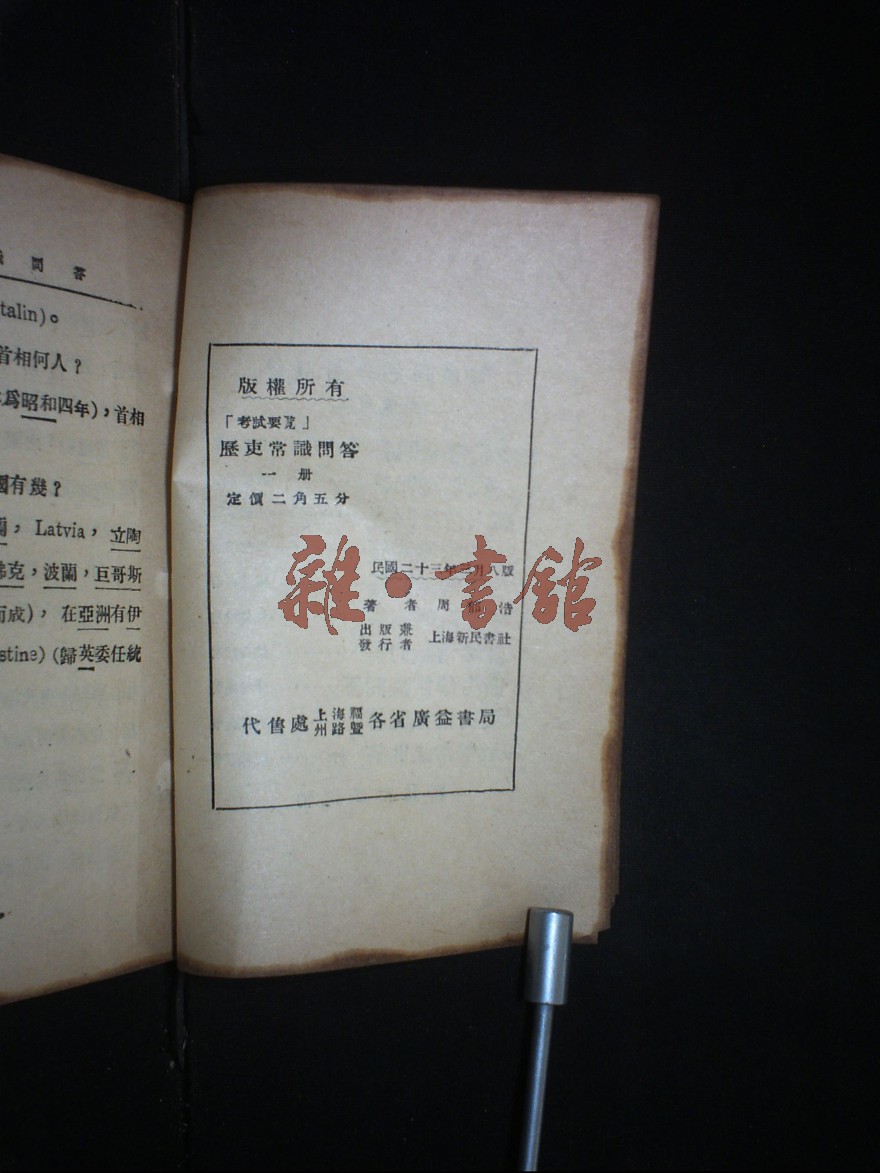 問答
talin)。
首相何人？
爲昭和四年)，首相
國有幾？
Latvia，立陶
克，波蘭，巨哥斯
而成)，在亞洲有伊
stine)(歸英委任統
版權所有
「考試要覽」
歷史常識問答
一册
定價二角五分
民國二十三年 月八版
著者 周 浩
出版兼發行者 上海新民書社
代售處 上海福州路暨各省廣益書局
雜·書館